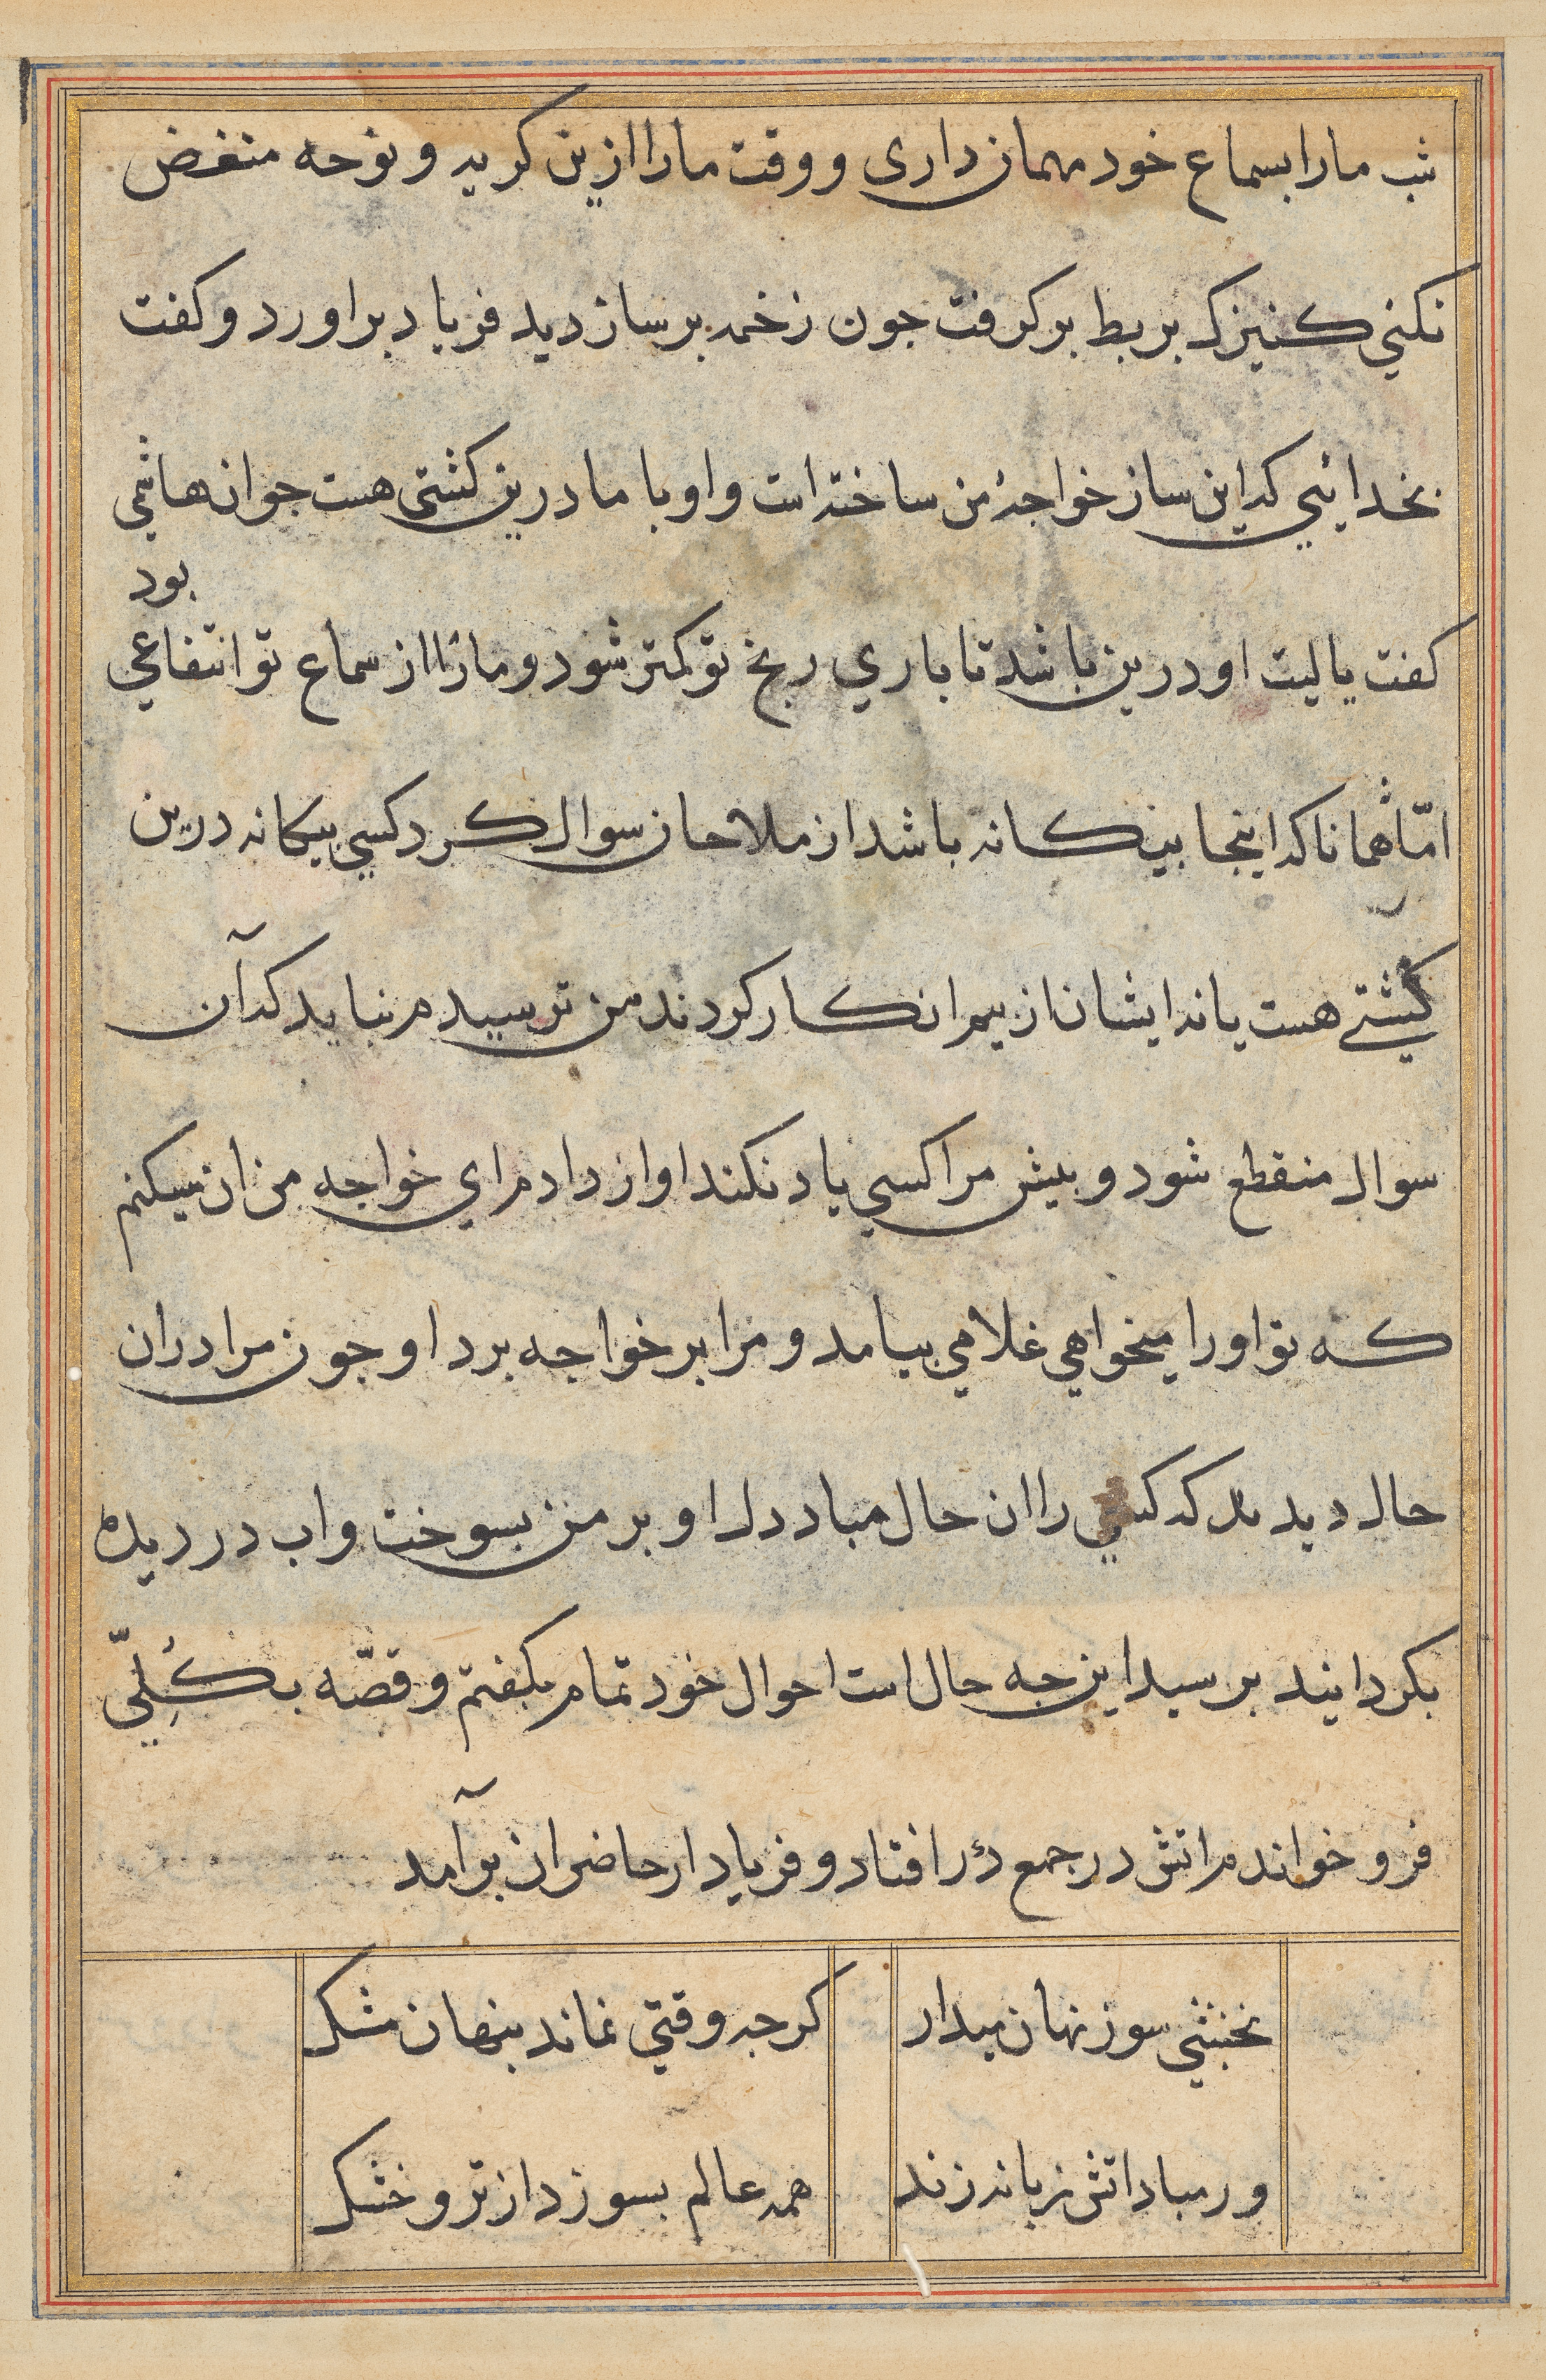 شب مارا بسماع خود مهمان داری و وقت مارا ازین کریه و نوحه منغض
نکنی کنیزک بربط برکرفت جون زخمه بر ساز دید فریاد براورد و کفت
بخدایی که این ساز خواجهٔ من ساخته است و او با ما درین کشتی هست جوان هاشمی
کفت یا لیت او درین باشد تا باری رنج تو کمتر شود و مارا از سماع تو انتفاعی بود
امّا همانا که اینجا بیکانه باشد از ملاحان سوال کرد کسی بیکانه درین
کشتی هست یا نه ایشان از بیم انکار کردند من ترسیدم نباید که آن
سوال منقطع شود و بیش مرا کسی یاد نکند اواز دادم ای خواجه من ان میکنم
که تو اورا میخواهی غلامی بیامد و مرا بر خواجه برد او جون مرا دران
حال دید که کسی را ان حال مباد دل او بر من بسوخت و اب در دیده
بکردانید برسید این جه حال است احوال خود تمام بکفتم و قصّه بکُلّی
فرو خواندم اتش در جمع در افتاد و فریاد از حاضران برآمد
نخشبی سوز نهان میدار کرجه وقتی نماند بنهان مشک
ور مبادا اتش زبانه زند همه عالم بسوزد از تر و خشک